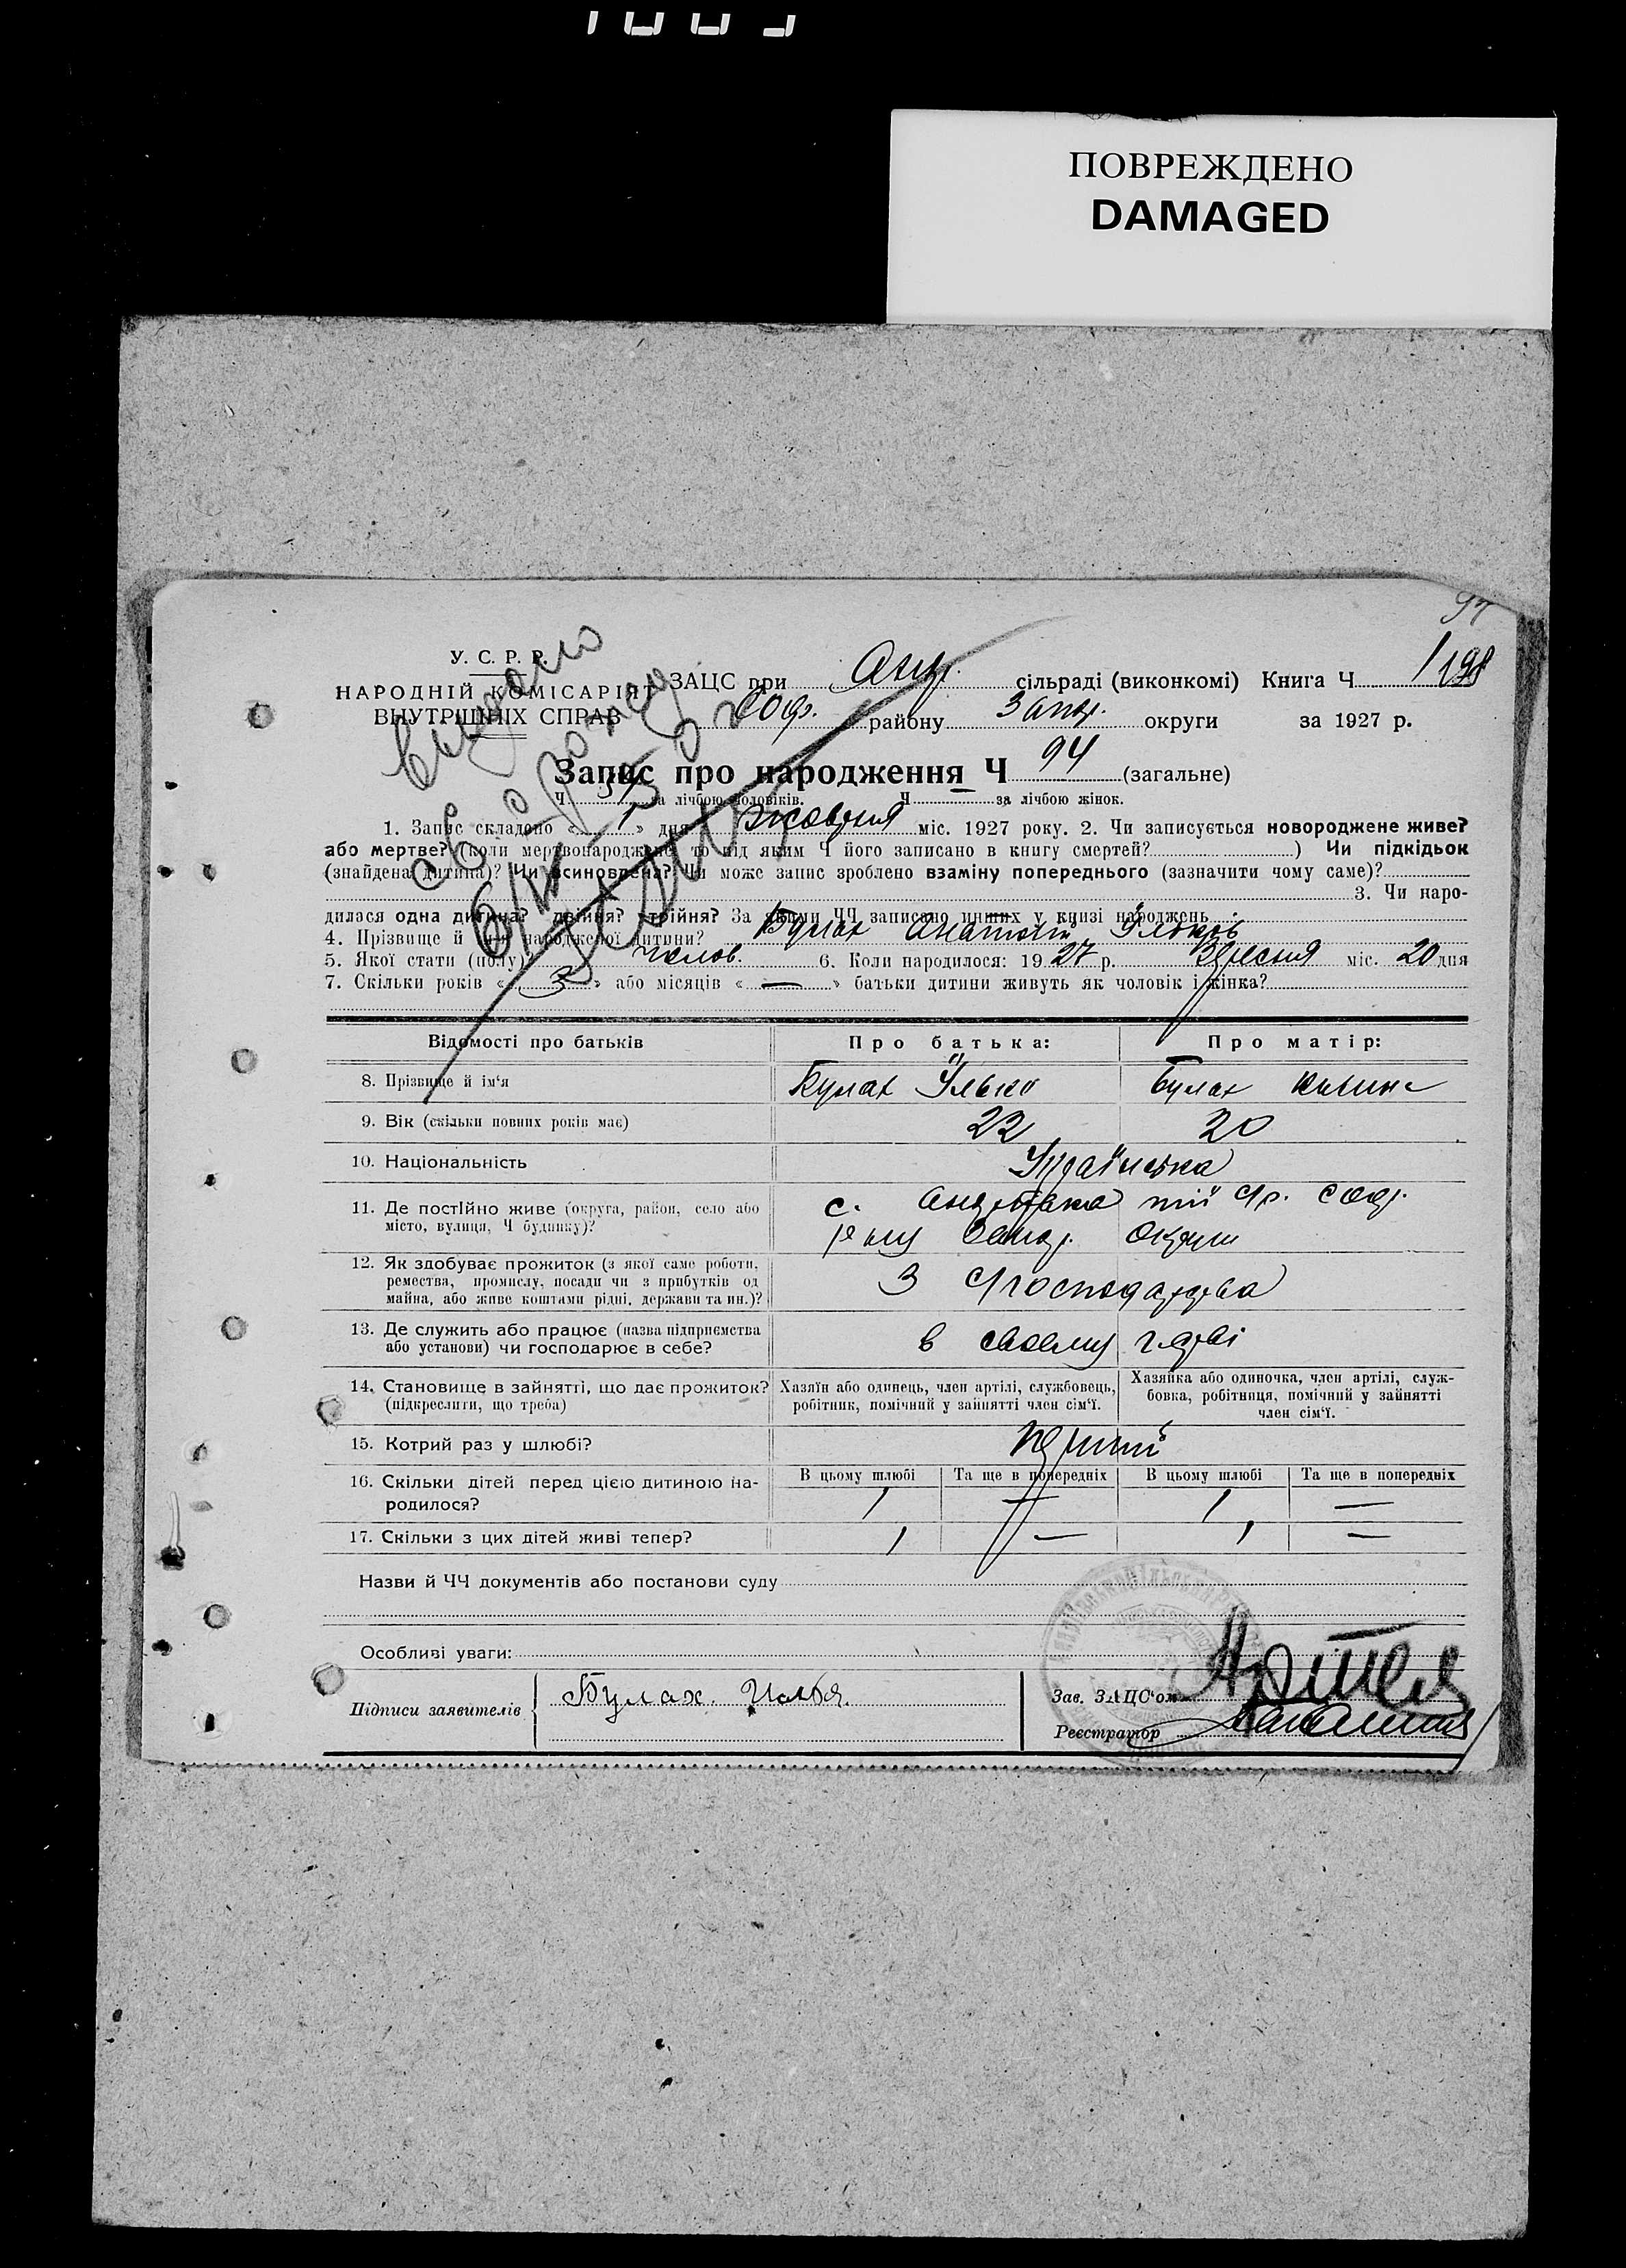 ПОВРЕЖДЕНО
DAMAGED
97
У. С. Р. Р.
НАРОДНІЙ КОМІСАРІЯТ
ВНУТРІШНІХ СПРАВ
ЗАЦС при Андр. сільраді (виконкомі) Книга Ч 1 198
Соф. району Запор. округи за 1927 р.
Запис про народження Ч 94 (загальне)
Ч. за лічбою чоловіків. Ч. за лічбою жінок.
1. Запис складено « 1 » дня жовтня міс. 1927 року. 2. Чи записується новороджене живе?
або мертве? (коли мертвонароджене, то під яким Ч його записано в книгу смертей? ) Чи підкідьок
(знайдена дитина)? Чи всиновлена? Чи може запис зроблено взаміну попереднього (зазначити чому саме)?
3. Чи наро-
дилася одна дитина? двійня? трійня? За якими ЧЧ записано инших у книзі народжень
4. Прізвище й ім'я народженої дитини? Булах Анатолій Ільков
5. Якої стати (полу)? челов. 6. Коли народилося: 1927 р. Вересня міс. 20 дня
7. Скільки років « 3 » або місяців « — » батьки дитини живуть як чоловік і жінка?
Відомості про батьків
Про батька:
Про матір:
8. Прізвище й ім'я Булах Ілько Булах
9. Вік (скільки повних років має) 22 20
10. Національність Українська
11. Де постійно живе (округа, район, село або
місто, вулиця, Ч будинку)?
с. Андріївка Соф.
р-ну Запор. Округи
12. Як здобуває прожиток (з якої саме роботи,
ремества, промислу, посади чи з прибутків од
майна, або живе коштами рідні, держави та ин.)?
З господарства
13. Де служить або працює (назва підприємства
або установи) чи господарює в себе?
в своему г-дрві
14. Становище в зайнятті, що дає прожиток?
(підкреслити, що треба)
Хазяїн або одинець, член артілі, службовець,
робітник, помічний у зайнятті член сім'ї.
Хазяйка або одиночка, член артілі, служ-
бовка, робітниця, помічний у зайнятті
член сім'ї.
15. Котрий раз у шлюбі? перший
16. Скільки дітей перед цією дитиною на-
родилося?
В цьому шлюбі Та ще в попередніх В цьому шлюбі Та ще в попередніх
1 — 1 —
17. Скільки з цих дітей живі тепер? 1 — 1 —
Назви й ЧЧ документів або постанови суду
Особливі уваги:
Підписи заявителів Булах. Илья.
Зав. ЗАЦС'ом
Реєстратор